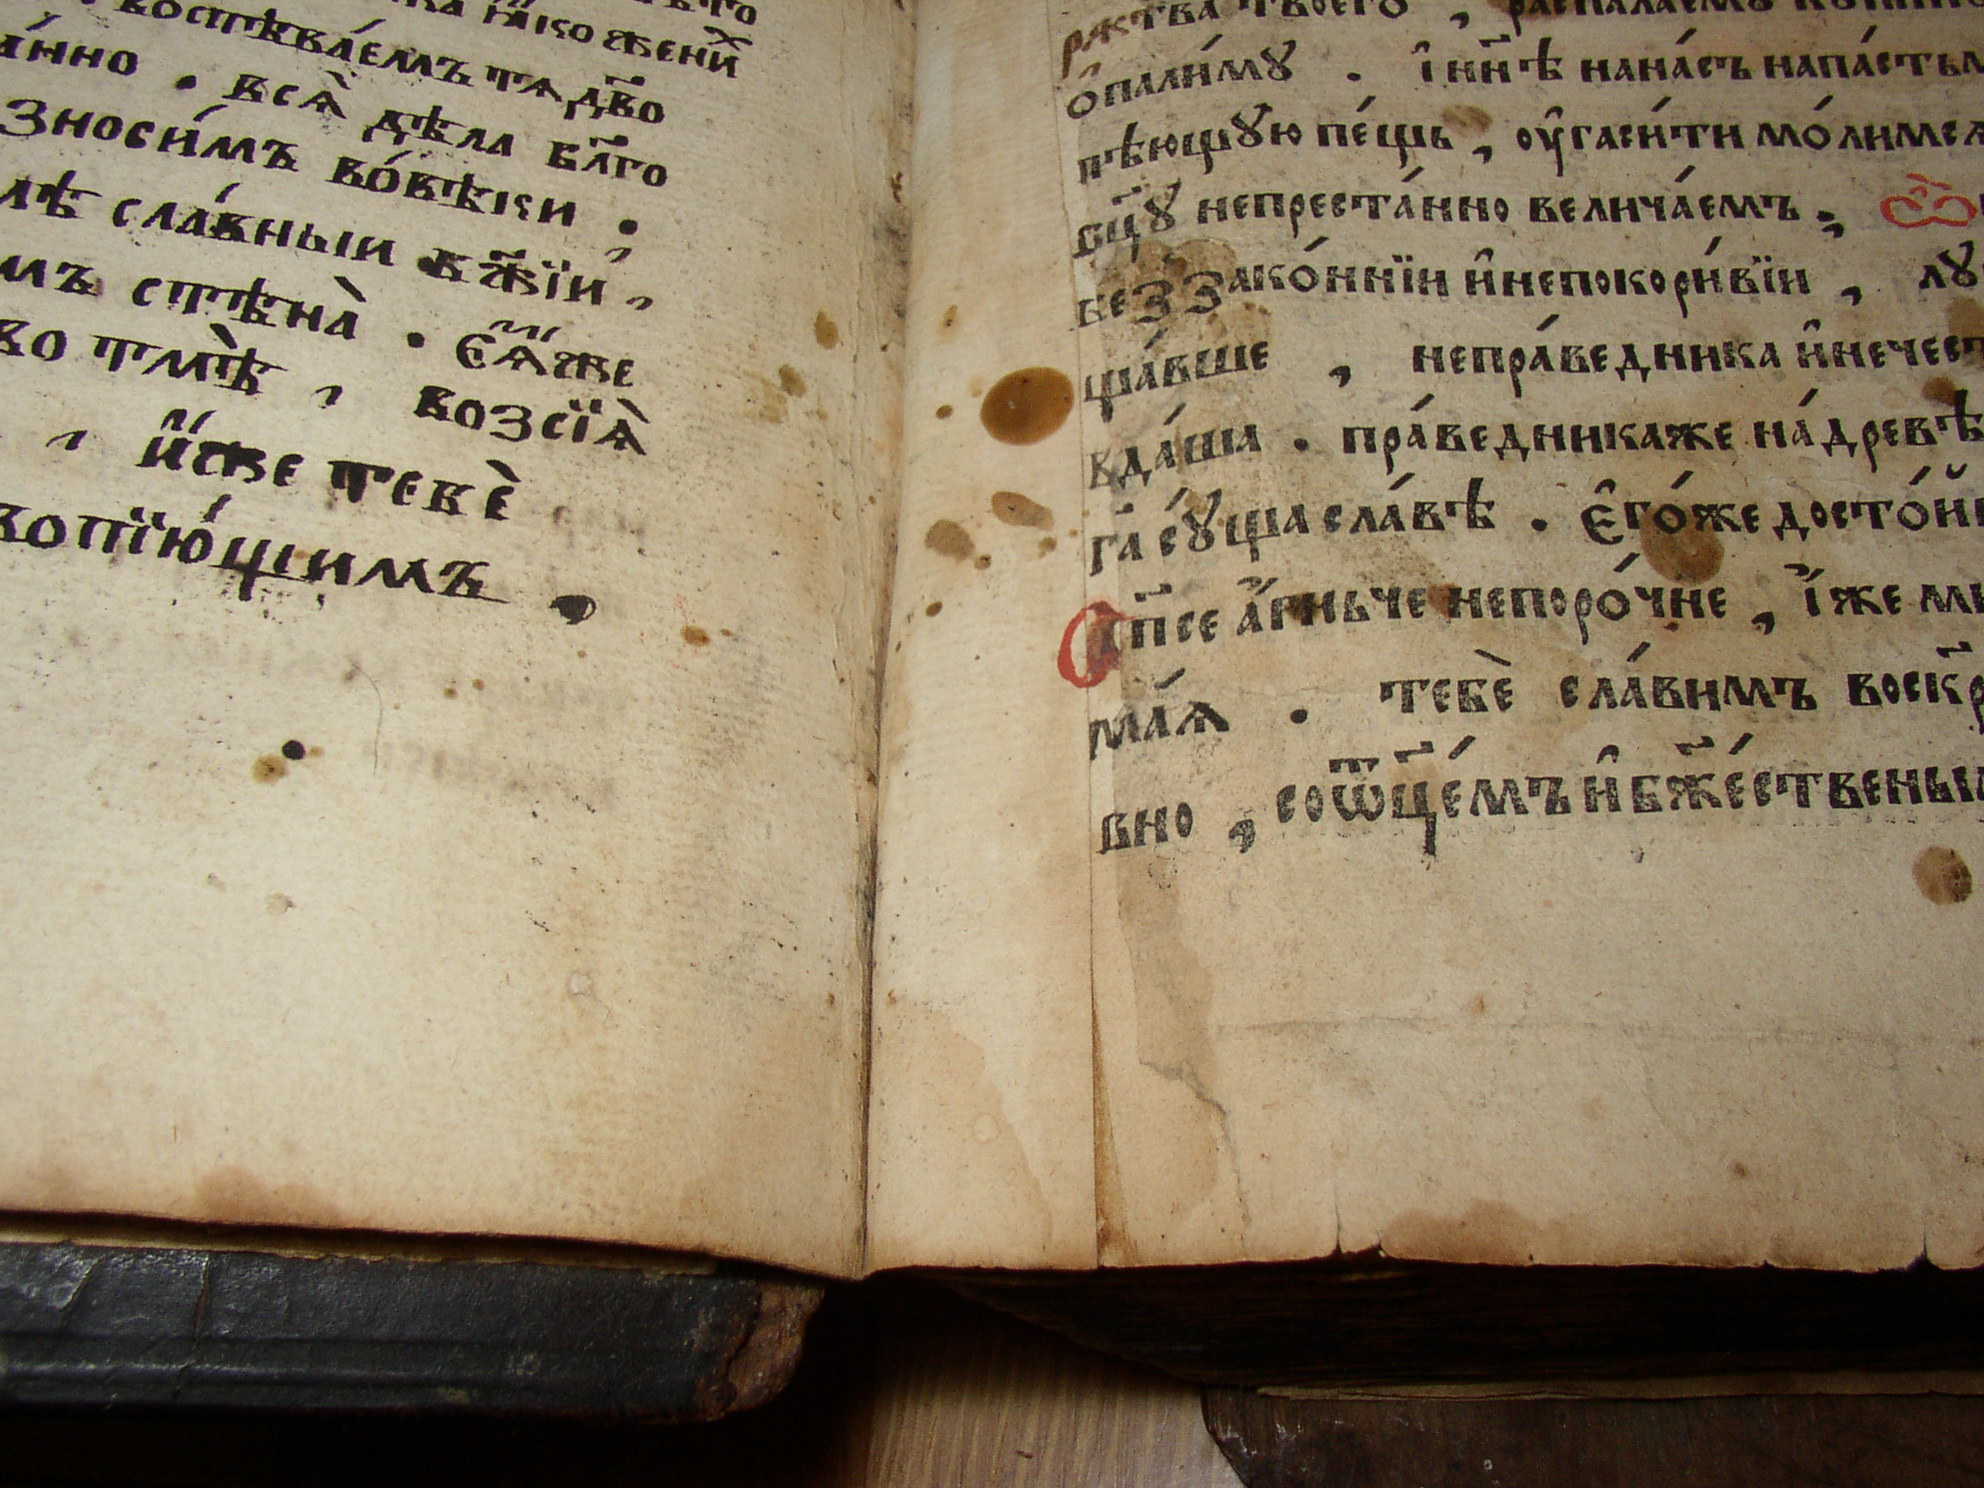 воспѣва́емъ тѧ дв҃о
и́нно . всѧ̀ дѣла бл҃го
зноси́мъ во́вѣки .
лѣ сла́вныи бж҃їи ,
мъ стѣна̀ . Є҆ѧ́же
во тмѣ̀ , возсїѧ̀
, и҆́же тебѐ
вопїю́щимъ ,
рж҃тва твоего̀ , распалаему
ѻ҆пали́му . і҆ нн҃ѣ нана́съ напа́стьм
пѣющꙋю пе́щь , оу҆гаси́ти мо́лимсѧ
бцⷣꙋ непреста́нно велича́емъ .,
беззако́ннїи и҆непокори́вїи , лꙋ
ща́вше , непра́ведника и҆нечест
вда́ша . пра́ведникаже на́древѣ
га҃ сꙋ́ща сла́вѣ . Є҆го́же досто́йн
Сп҃се а҆́гньче непоро́чне , і҆́же ми
ма́ѧ . тебѐ сла́вимъ воскр
вно , соѿц҃е́мъ и҆бж҃е́ственым